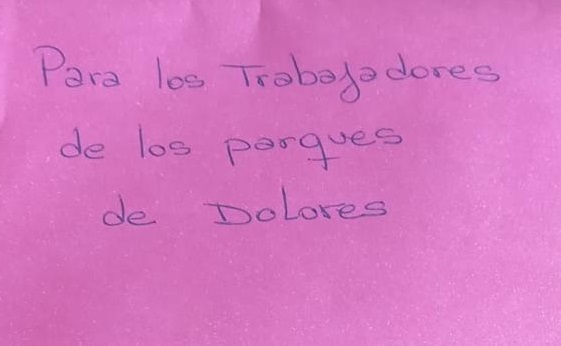 Para los Trabajadores
de los parques
de Dolores